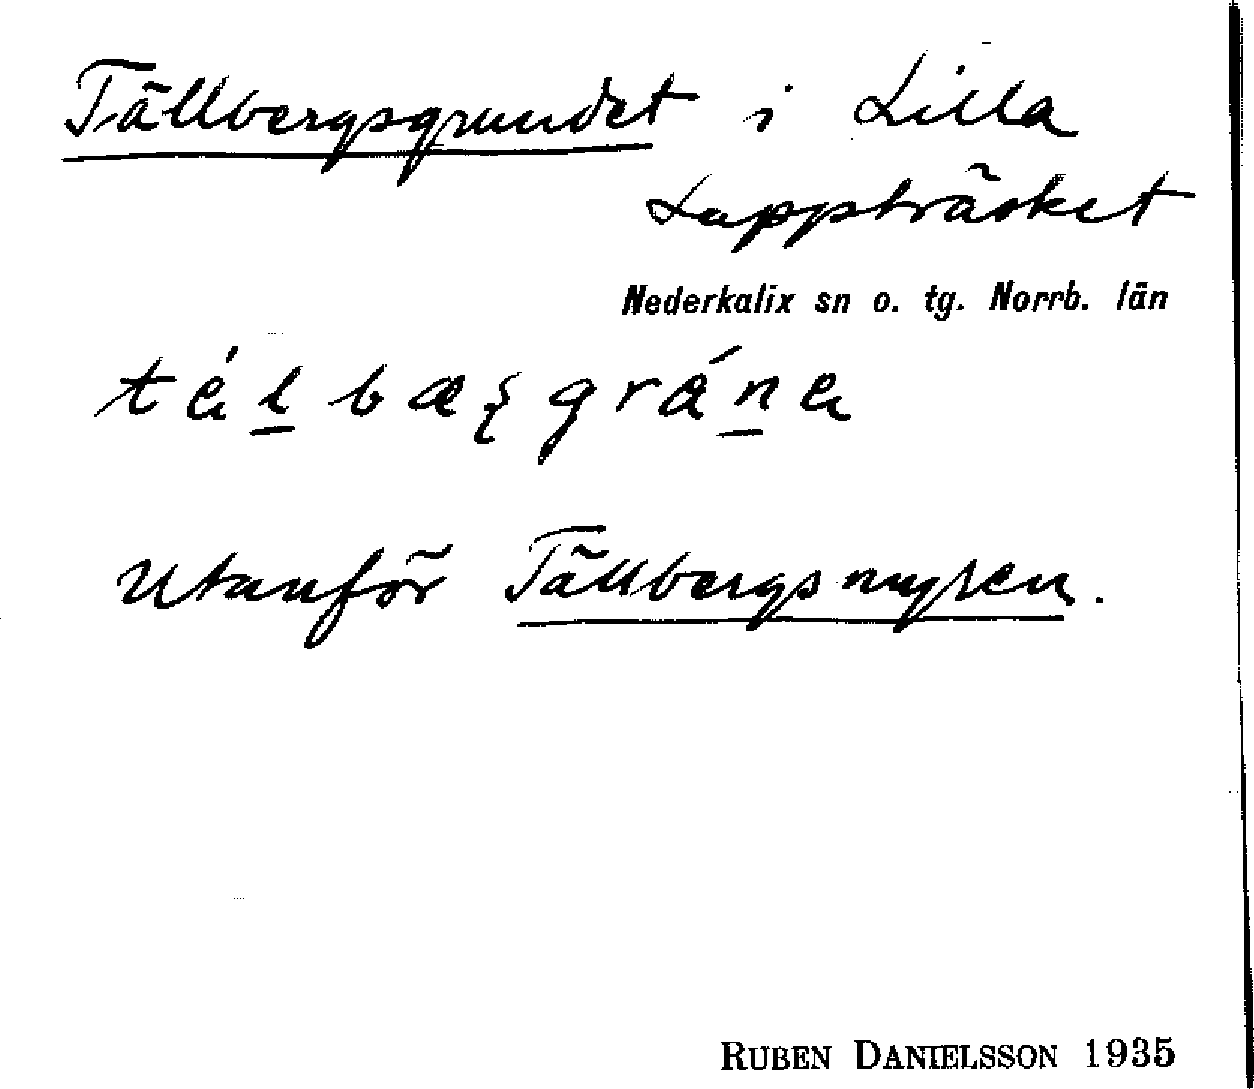 Tällbergsgrundet i Lilla
Lappträsket
Nederkalix sn o. tg. Norrb. län
Utanför Tällbergsmyren.
RUBEN DANIELSSON 1935